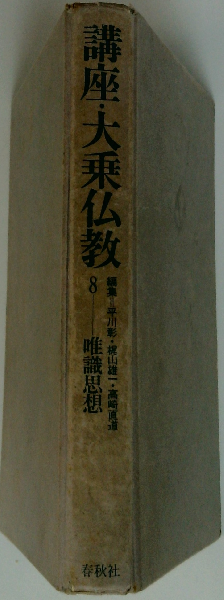 講座・大乗仏教
8——唯識思想
編集=平川彰・梶山雄一・高崎直道
春秋社